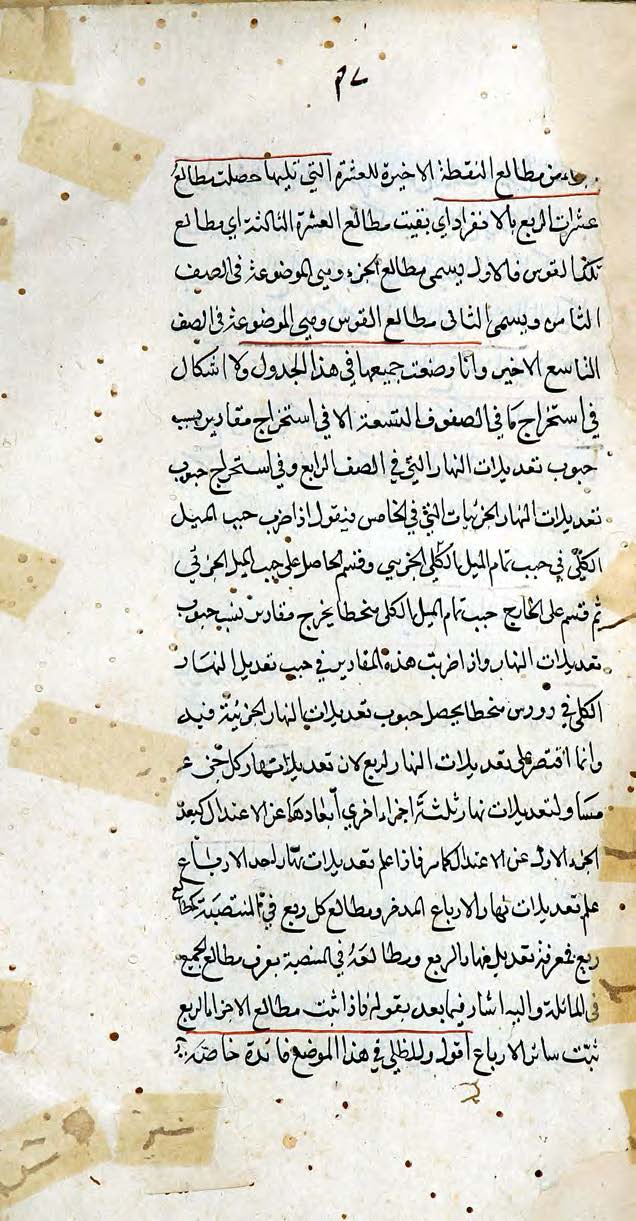 من مطالع النقطة الاخيرة للعشرة التى تليها حصلت مطالع
عشرات الربع بالانفراد اى بقيت مطالع العشرة الثالثة اى مطالع
تلك القوس فالاول يسمى مطالع الجزء وهى الموضوعة فى الصف
الثامن ويسمى الثانى مطالع القوس وهى الموضوعة فى الصف
التاسع الاخير وانا وضعت جميعها فى هذا الجدول ولا اشكال
فى استخراج ما فى الصفوف التسعة الا فى استخراج مقادير نسب
جيوب تعديلات النهار التى فى الصف الرابع وفى استخراج جيوب
تعديلات النهار الجزئيات التى فى الخامس فنقول اذا ضرب جيب الميل
الكلى فى جيب تمام الميل الكلى الجزئى وقسم الحاصل على جيب الميل الجزئى
ثم قسم على الخارج جيب تمام الميل الكلى منحطا يخرج مقادير نسب جيوب
تعديلات النهار واذا ضربت هذه المقادير فى جيب تعديل النهار
الكلى فى منحطا يحصل جيوب تعديلات النهار الجزئية فيه
وانما اقتصر على تعديلات النهار لربع لان تعديلات نهار كل جزء
مساو لتعديلات نهار ثلثة اجزاء اخرى ابعادها عن الاعتدال كبعد
الجزء الاول عن الاعتدال كما مر فاذا علم تعديلات نهار احد الارباع
علم تعديلات نهار الارباع ومطالع كل ربع فى المنتصبة كمطالع
ربع فمعرفة تعديل نهار الربع ومطالعه فى المنتصبة يعرف مطالع الجميع
فى المائلة واليه اشار فيما بعد بقوله فاذا ثبت مطالع الاجزاء لربع
ثبت سائر الارباع اقول وللظلى فى هذا الموضع فائدة خاصة